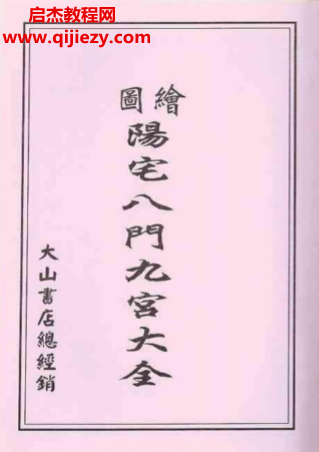 启杰教程网
www.qijiezy.com
繪圖
陽宅八門九宮大全
大山書店總經銷